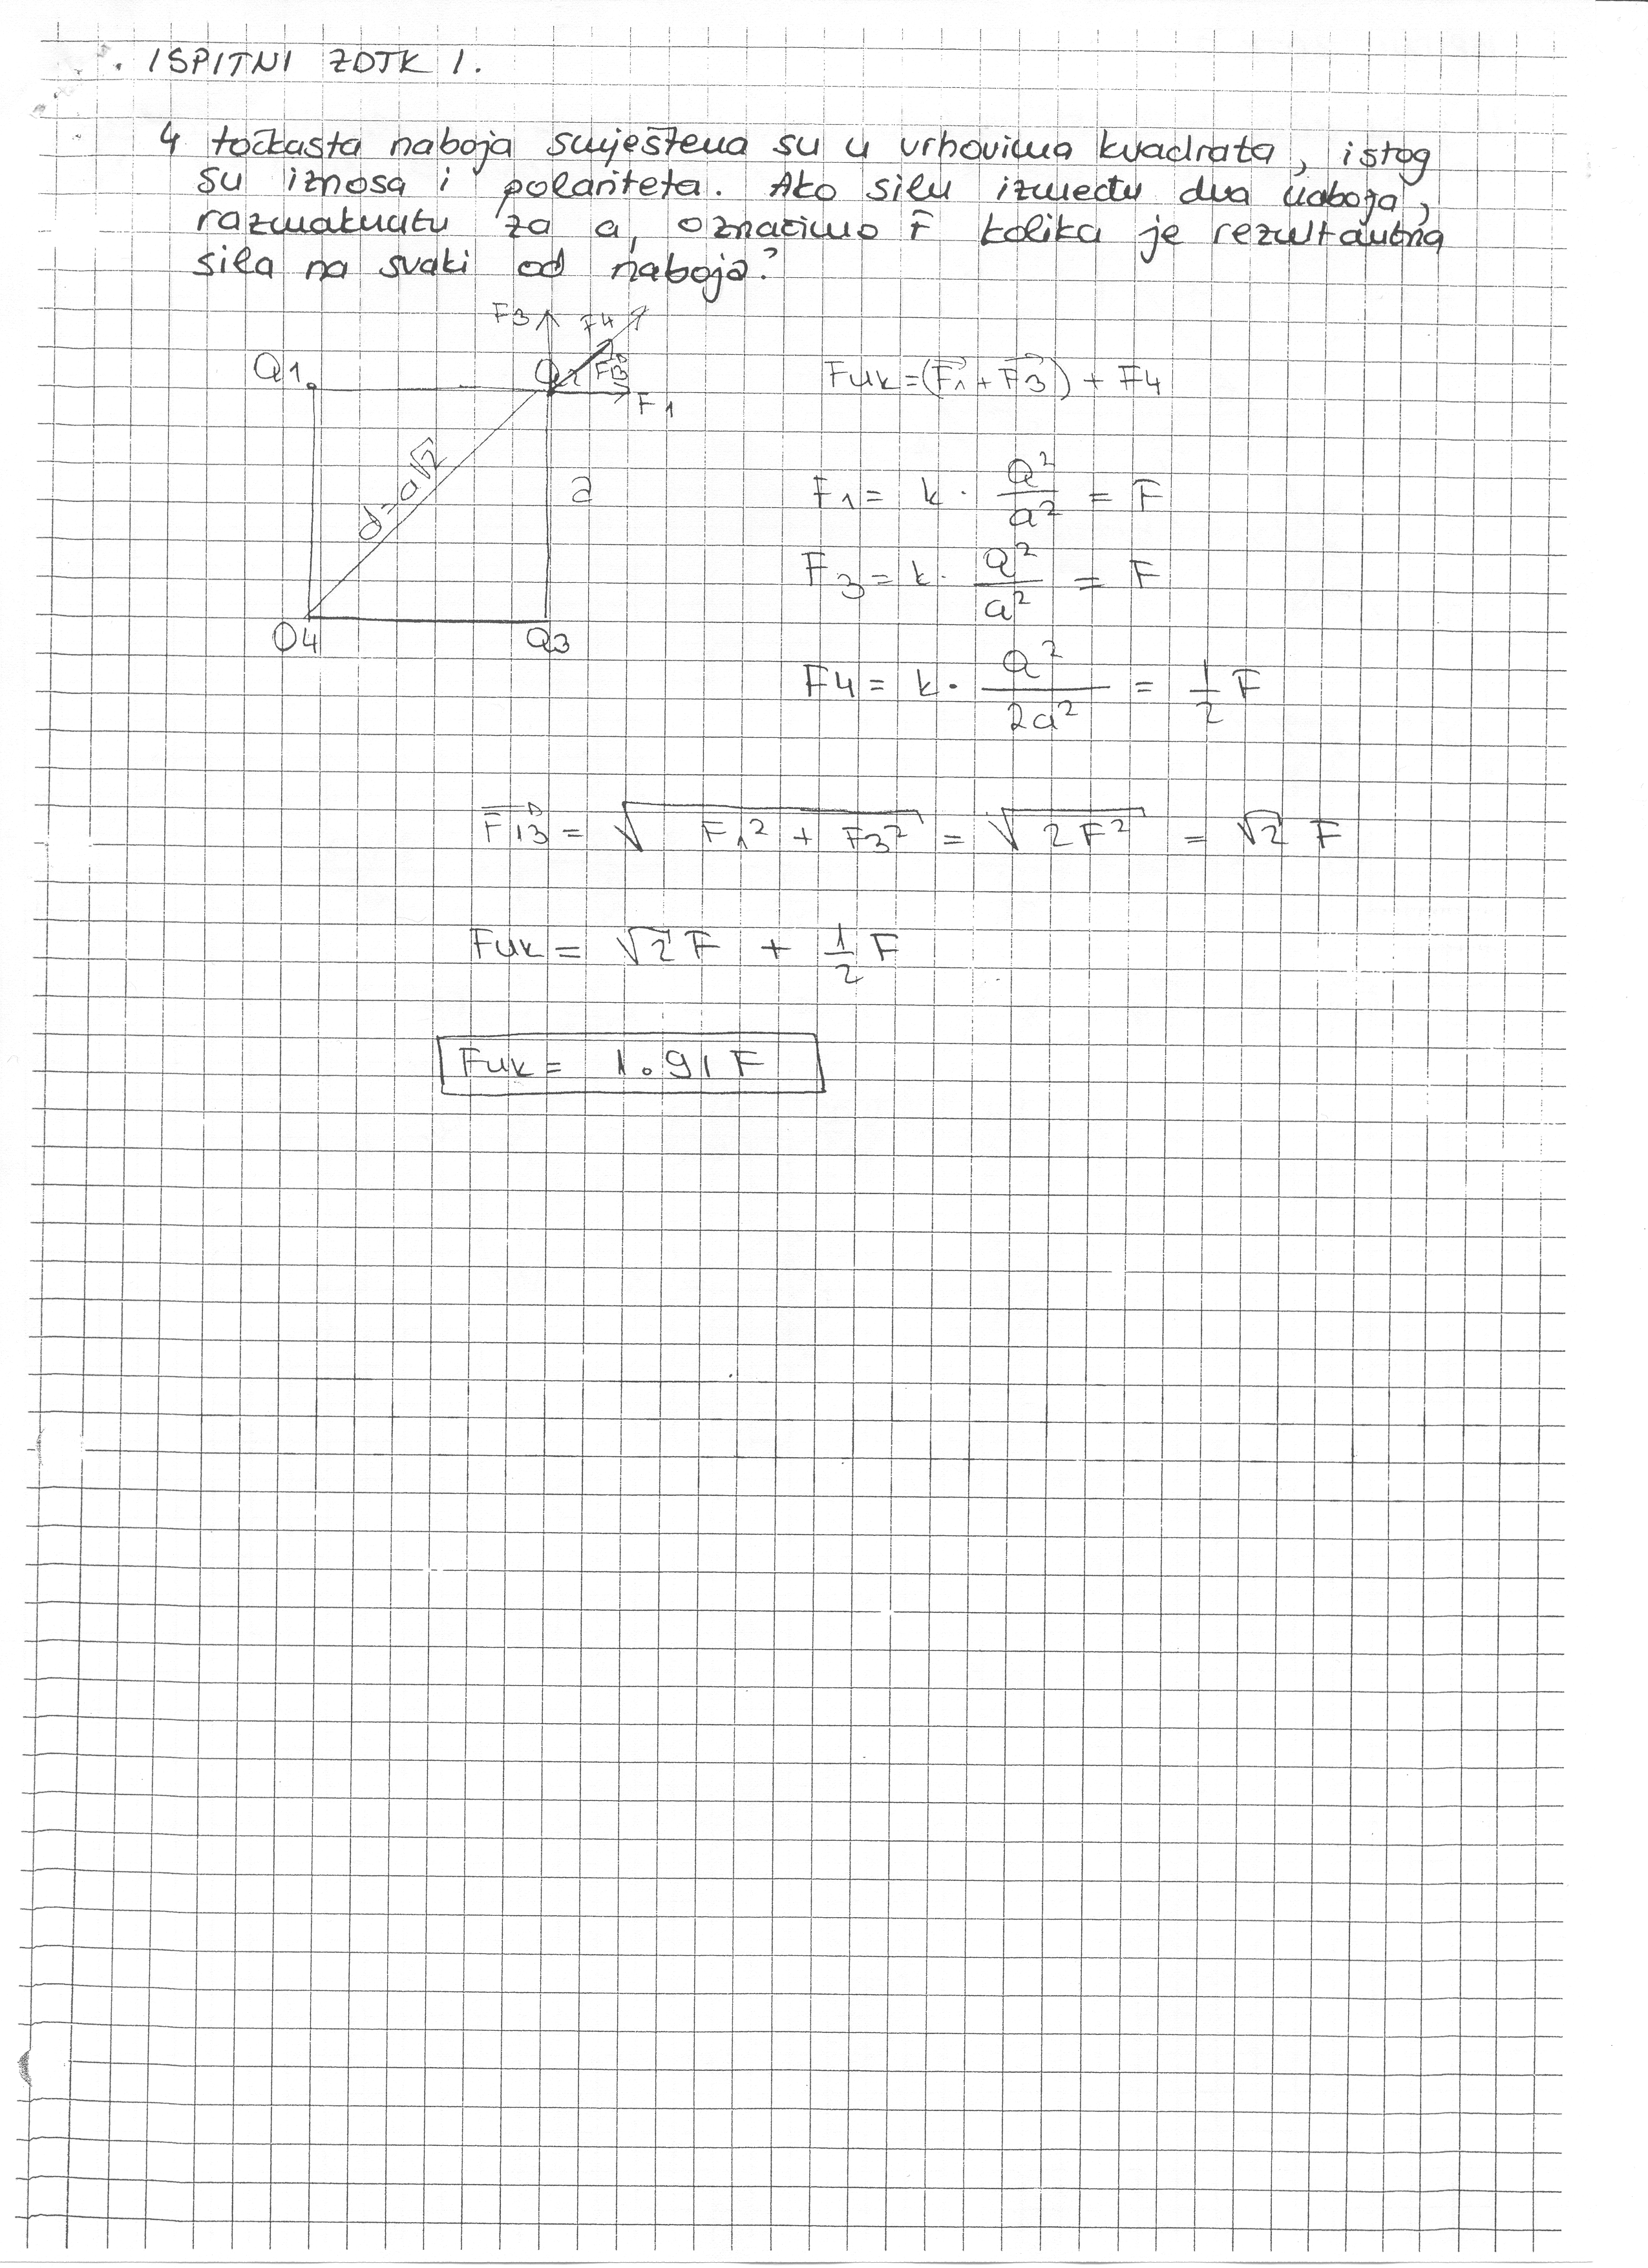 . ISPITNI ZDTK 1.
4 točkasta naboja smještena su u vrhovima kvadrata, istog
su iznosa i polariteta. Ako silu između dva naboja,
razmaknutu za a, označimo F kolika je rezultantna
sila na svaki od naboja?
F3 F4
Q1 Q2 F13 F1
Fuk = (F1 + F3) + F4
d=a√2 a
F1 = k · Q²/a² = F
F3 = k · Q²/a² = F
Q4 Q3
F4 = k · Q²/2a² = 1/2 F
F13 = √F1² + F3² = √2F² = √2 F
Fuk = √2 F + 1/2 F
Fuk = 1.91 F